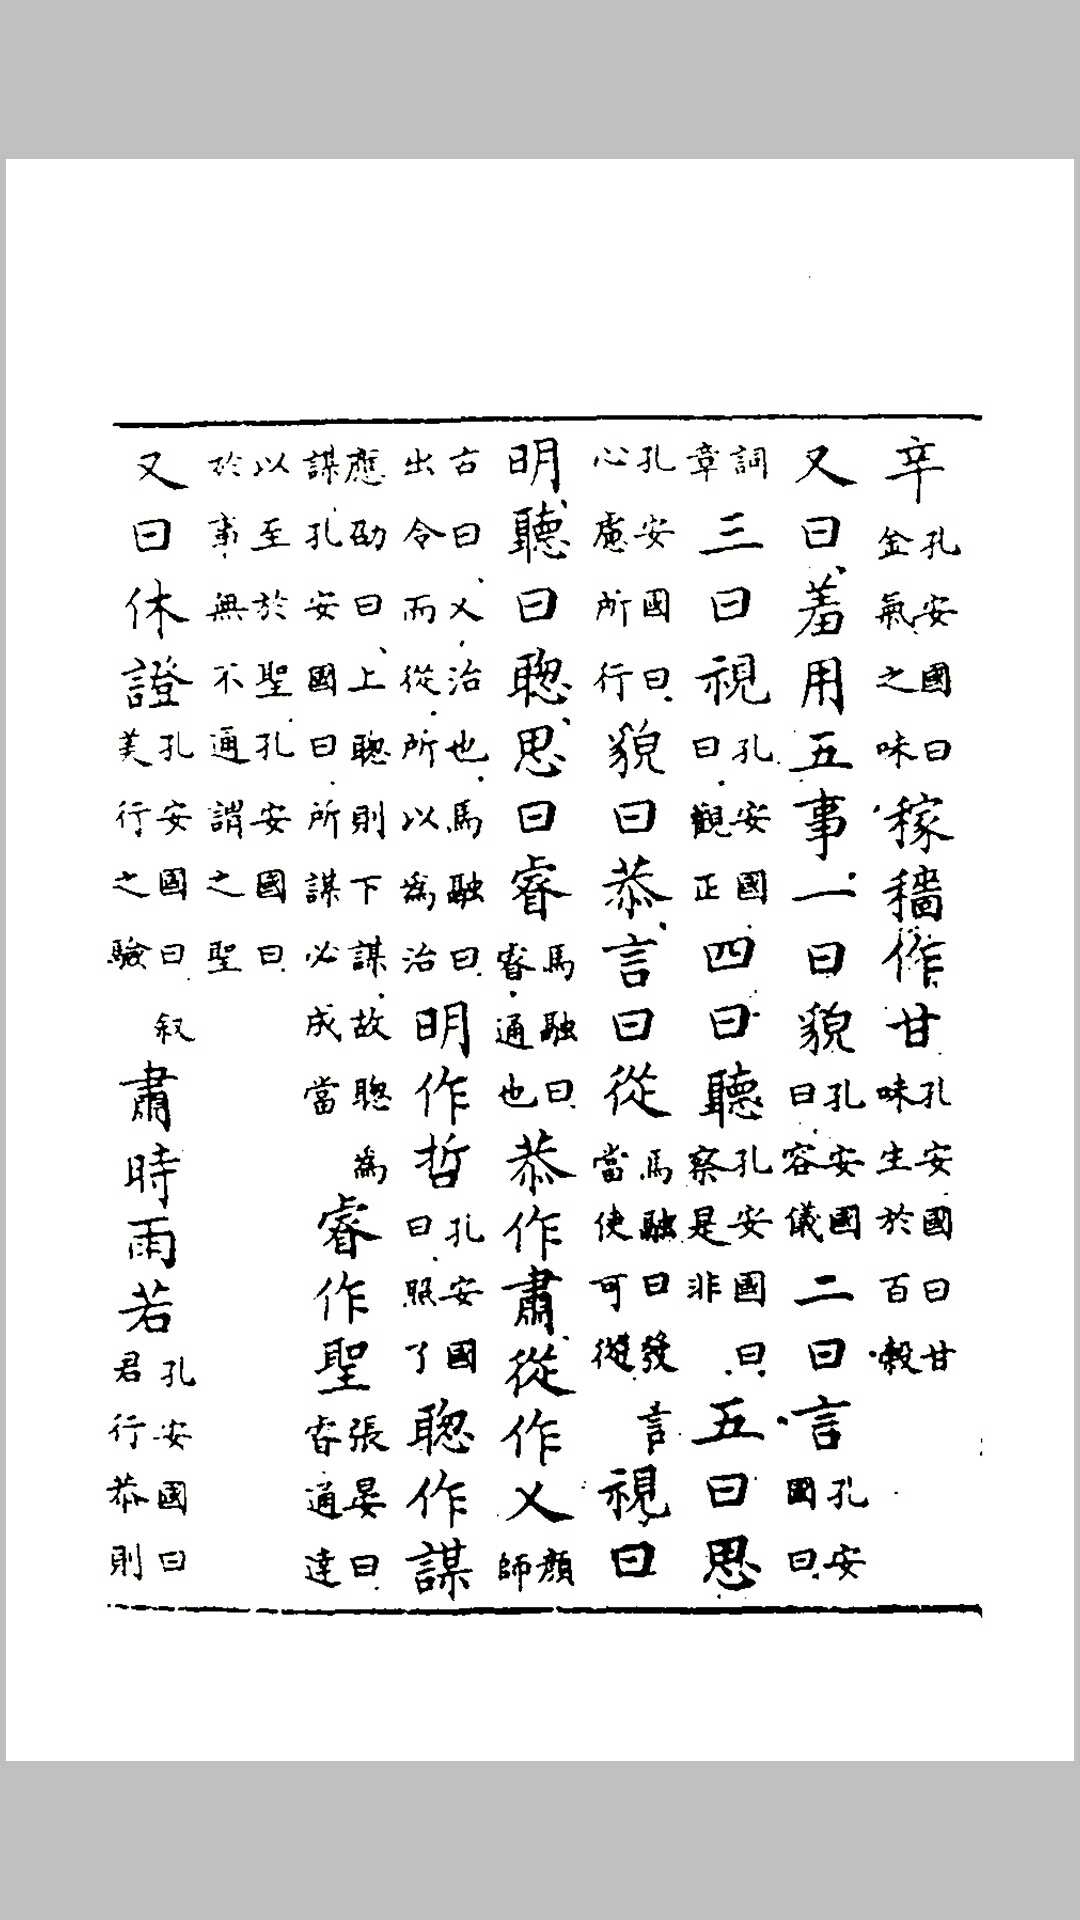 辛孔安國曰金氣之味稼穡作甘孔安國曰甘味生於百穀
又曰羞用五事一曰貌孔安國曰容儀二曰言孔安國曰
詞章三曰視孔安國曰觀正四曰聽孔安國曰察是非五曰思
孔安國曰心慮所行貌曰恭言曰從馬融曰發言當使可從視曰
明聽曰聰思曰睿馬融曰睿通也恭作肅從作乂顏師
古曰乂治也馬融曰出令而從所以為治明作哲孔安國曰照了聰作謀
應劭曰上聰則下謀故聰為謀孔安國曰所謀必成當睿作聖張晏曰睿通達
以至於聖孔安國曰於事無不通謂之聖
又曰休證孔安國曰叙美行之驗肅時雨若孔安國曰君行恭則